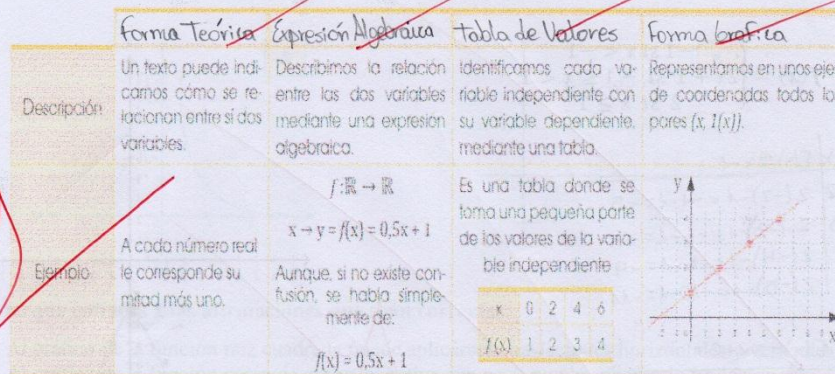 Forma Teórica Expresión Algebraica tabla de Valores Forma Grafica
Descripción
Un texto puede indi-
carnos cómo se re-
lacionan entre sí dos
variables.
Describimos la relación
entre las dos variables
mediante una expresión
algebraica.
Identificamos cada va-
riable independiente con
su variable dependiente,
mediante una tabla.
Representamos en unos eje
de coordenadas todos lo
pares (x, f(x)).
Ejemplo
A cada número real
le corresponde su
mitad más uno.
f:ℝ → ℝ
x → y = f(x) = 0,5x + 1
Aunque, si no existe con-
fusión, se habla simple-
mente de:
f(x) = 0,5x + 1
Es una tabla donde se
toma una pequeña parte
de los valores de la varia-
ble independiente
x 0 2 4 6
f(x) 1 2 3 4
y
x